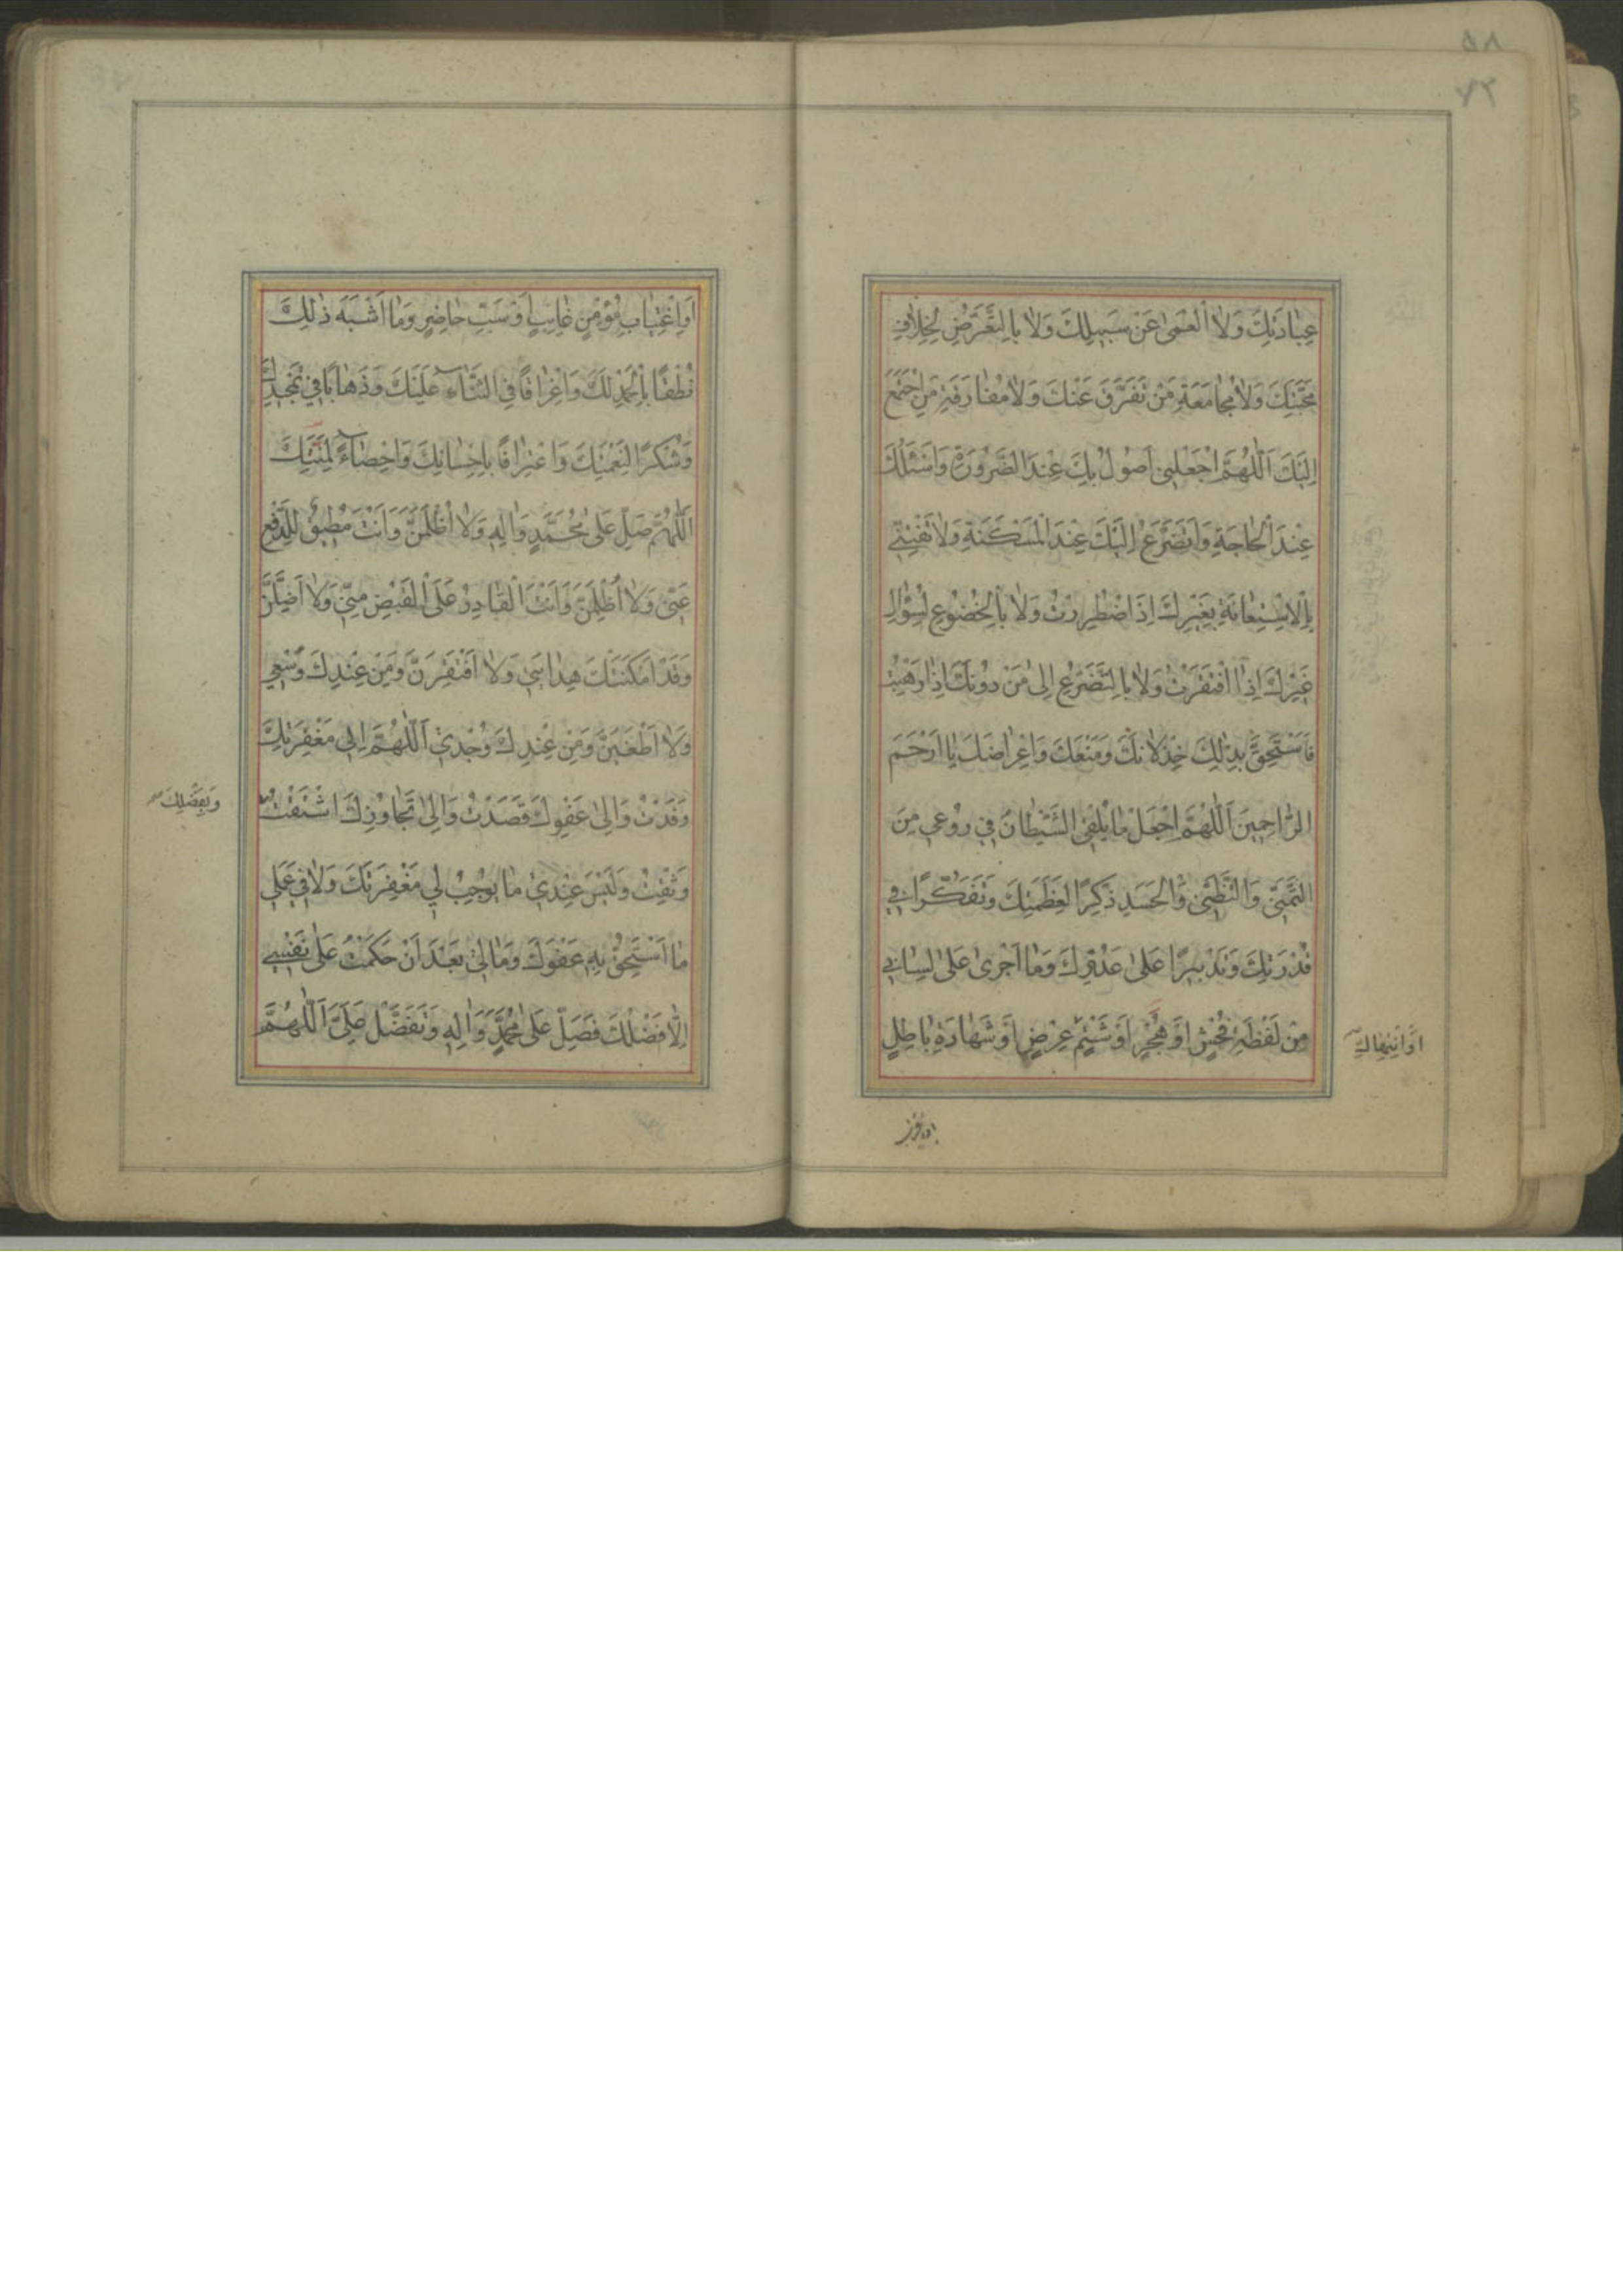 عِبٰادَتِكَ وَلَا الْعَمىٰ عَنْ سَبيلِكَ وَلٰا بِالتَّعَرُّضِ لِخِلٰافِ
مَحَبَّتِكَ وَلٰا مُجٰامَعَةِ مَنْ تَفَرَّقَ عَنْكَ وَلٰا مُفٰارَقَةِ مَنِ اجْتَمَعَ
اِلَيْكَ اَللّٰهُمَّ اجْعَلْنى اَصُولُ بِكَ عِنْدَ الضَّرُورَةِ وَاَسْئَلُكَ
عِنْدَ الْحٰاجَةِ وَاَتَضَرَّعُ اِلَيْكَ عِنْدَ الْمَسْكَنَةِ وَلٰا تَفْتِنّى
بِالْاِسْتِعٰانَةِ بِغَيْرِكَ اِذَا اضْطُرِرْتُ وَلٰا بِالْخُضُوعِ لِسُؤٰالِ
غَيْرِكَ اِذَا افْتَقَرْتُ وَلٰا بِالتَّضَرُّعِ اِلىٰ مَنْ دُونَكَ اِذٰا رَهِبْتُ
فَاَسْتَحِقَّ بِذٰلِكَ خِذْلٰانَكَ وَمَنْعَكَ وَاِعْرٰاضَكَ يٰا اَرْحَمَ
الرّٰاحِمينَ اَللّٰهُمَّ اجْعَلْ مٰا يُلْقِى الشَّيْطٰانُ فى رُوعى مِنَ
التَّمَنّى وَالتَّظَنّى وَالْحَسَدِ ذِكْرًا لِعَظَمَتِكَ وَتَفَكُّرًا فى
قُدْرَتِكَ وَتَدْبيرًا عَلىٰ عَدُوِّكَ وَمٰا اَجْرىٰ عَلىٰ لِسٰانى
مِنْ لَفْظَةِ فُحْشٍ اَوْ هُجْرٍ اَوْ شَتْمِ عِرْضٍ اَوْ شَهٰادَةِ بٰاطِلٍ
اَوِ اغْتِيٰابِ مُؤْمِنٍ غٰائِبٍ اَوْ سَبِّ حٰاضِرٍ وَمٰا اَشْبَهَ ذٰلِكَ
نُطْقًا بِالْحَمْدِ لَكَ وَاِغْرٰاقًا فِى الثَّنٰاءِ عَلَيْكَ وَذَهٰابًا فى تَمْجيدِكَ
وَشُكْرًا لِنِعْمَتِكَ وَاعْتِرٰافًا بِاِحْسٰانِكَ وَاِحْصٰاءً لِمِنَنِكَ
اَللّٰهُمَّ صَلِّ عَلىٰ مُحَمَّدٍ وَاٰلِهِ وَلٰا اُظْلَمَنَّ وَاَنْتَ مُطيقٌ لِلدَّفْعِ
عَنّى وَلٰا اَظْلِمَنَّ وَاَنْتَ الْقٰادِرُ عَلَى الْقَبْضِ مِنّى وَلٰا اَضِلَّنَّ
وَقَدْ اَمْكَنَتْكَ هِدٰايَتى وَلٰا اَفْتَقِرَنَّ وَمِنْ عِنْدِكَ وُسْعى
وَلٰا اَطْغَيَنَّ وَمِنْ عِنْدِكَ وُجْدى اَللّٰهُمَّ اِلىٰ مَغْفِرَتِكَ
وَفَدْتُ وَاِلىٰ عَفْوِكَ قَصَدْتُ وَاِلىٰ تَجٰاوُزِكَ اشْتَقْتُ
وَبِفَضْلِكَ
وَثِقْتُ وَلَيْسَ عِنْدى مٰا يُوجِبُ لى مَغْفِرَتَكَ وَلٰا فى عَمَلى
مٰا اَسْتَحِقُّ بِهِ عَفْوَكَ وَمٰا لى بَعْدَ اَنْ حَكَمْتُ عَلىٰ نَفْسى
اِلّٰا فَضْلُكَ فَصَلِّ عَلىٰ مُحَمَّدٍ وَاٰلِهِ وَتَفَضَّلْ عَلَىَّ اَللّٰهُمَّ